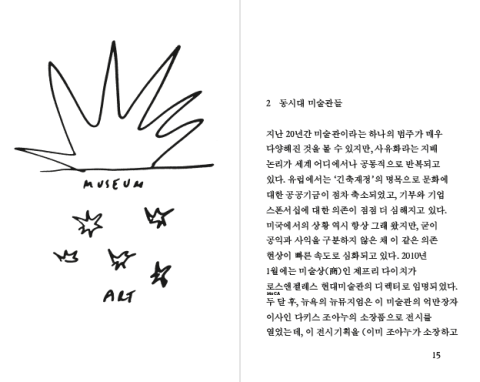 MUSEUM
ART
2 동시대 미술관들
지난 20년간 미술관이라는 하나의 범주가 매우
다양해진 것을 볼 수 있지만, 사유화라는 지배
논리가 세계 어디에서나 공통적으로 반복되고
있다. 유럽에서는 ‘긴축재정’의 명목으로 문화에
대한 공공기금이 점차 축소되었고, 기부와 기업
스폰서십에 대한 의존이 점점 더 심해지고 있다.
미국에서의 상황 역시 항상 그래 왔지만, 굳이
공익과 사익을 구분하지 않은 채 이 같은 의존
현상이 빠른 속도로 심화되고 있다. 2010년
1월에는 미술상(商)인 제프리 다이치가
로스앤젤레스 현대미술관의 디렉터로 임명되었다.
MoCA
두 달 후, 뉴욕의 뉴뮤지엄은 이 미술관의 억만장자
이사인 다키스 조아누의 소장품으로 전시를
열었는데, 이 전시기획을 (이미 조아누가 소장하고
15